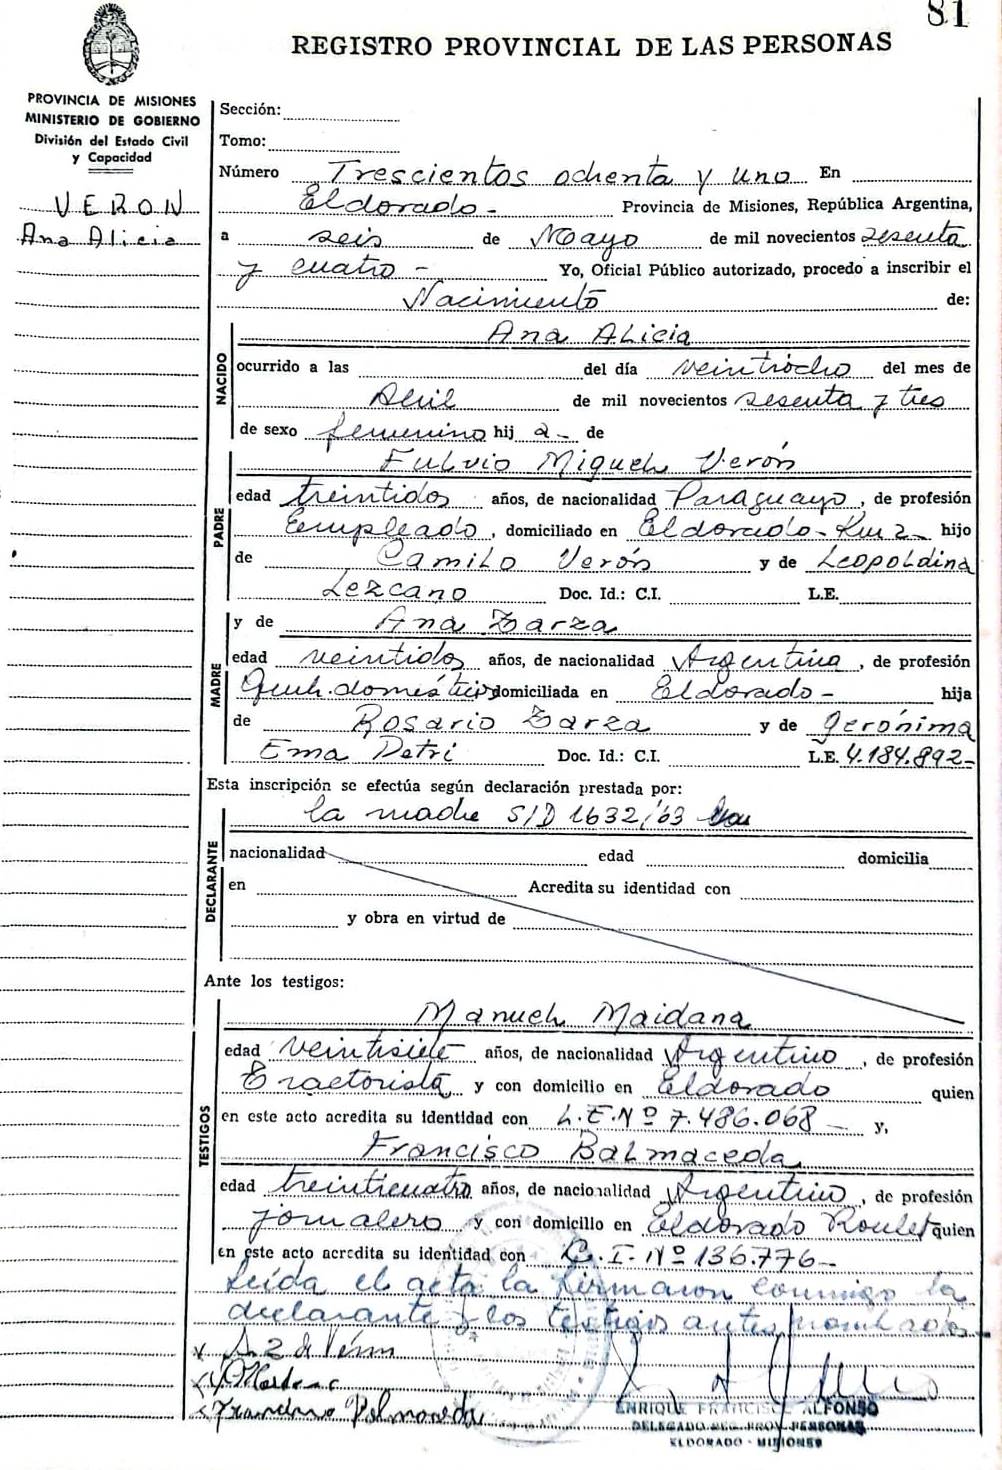 81
REGISTRO PROVINCIAL DE LAS PERSONAS
PROVINCIA DE MISIONES
MINISTERIO DE GOBIERNO
División del Estado Civil
y Capacidad
VERON
Ana Alicia
Sección:
Tomo:
Número Trescientos ochenta y uno En
Eldorado - Provincia de Misiones, República Argentina,
a seis de Mayo de mil novecientos sesenta
y cuatro - Yo, Oficial Público autorizado, procedo a inscribir el
Nacimiento de:
NACIDO
Ana Alicia
ocurrido a las del día veintiocho del mes de
Abril de mil novecientos sesenta y tres
de sexo femenino hij a - de
PADRE
Fulvio Miguel Verón
edad treintidos años, de nacionalidad Paraguayo, de profesión
Empleado, domiciliado en Eldorado - Km 2 - hijo
de Camilo Verón y de Leopoldina
Lezcano Doc. Id.: C.I. L.E.
MADRE
y de Ana Zarza
edad veintidos años, de nacionalidad Argentina, de profesión
domiciliada en Eldorado - hija
de Rosario Zarza y de Gerónima
Ema Petri Doc. Id.: C.I. L.E. 4.184.892-
Esta inscripción se efectúa según declaración prestada por:
DECLARANTE
la madre S/D 1632/63
nacionalidad edad domicilia
en Acredita su identidad con
y obra en virtud de
Ante los testigos:
TESTIGOS
Manuel Maidana
edad veintisiete años, de nacionalidad Argentino, de profesión
Tractorista y con domicilio en Eldorado quien
en este acto acredita su identidad con L.E. Nº 7.486.068 - y,
Francisco Balmaceda
edad treinticuatro años, de nacionalidad Argentino, de profesión
Jornalero y con domicilio en Eldorado Roulet quien
en este acto acredita su identidad con C.I. Nº 136.776-
Leída el acta la firmaron conmigo la
declarante y los testigos antes nombrados -
x A Z de Verón
x M Maidana
x Francisco Balmaceda
ENRIQUE FRANCISCO ALFONSO
DELEGADO REG. PROV. PERSONAS
ELDORADO - MISIONES